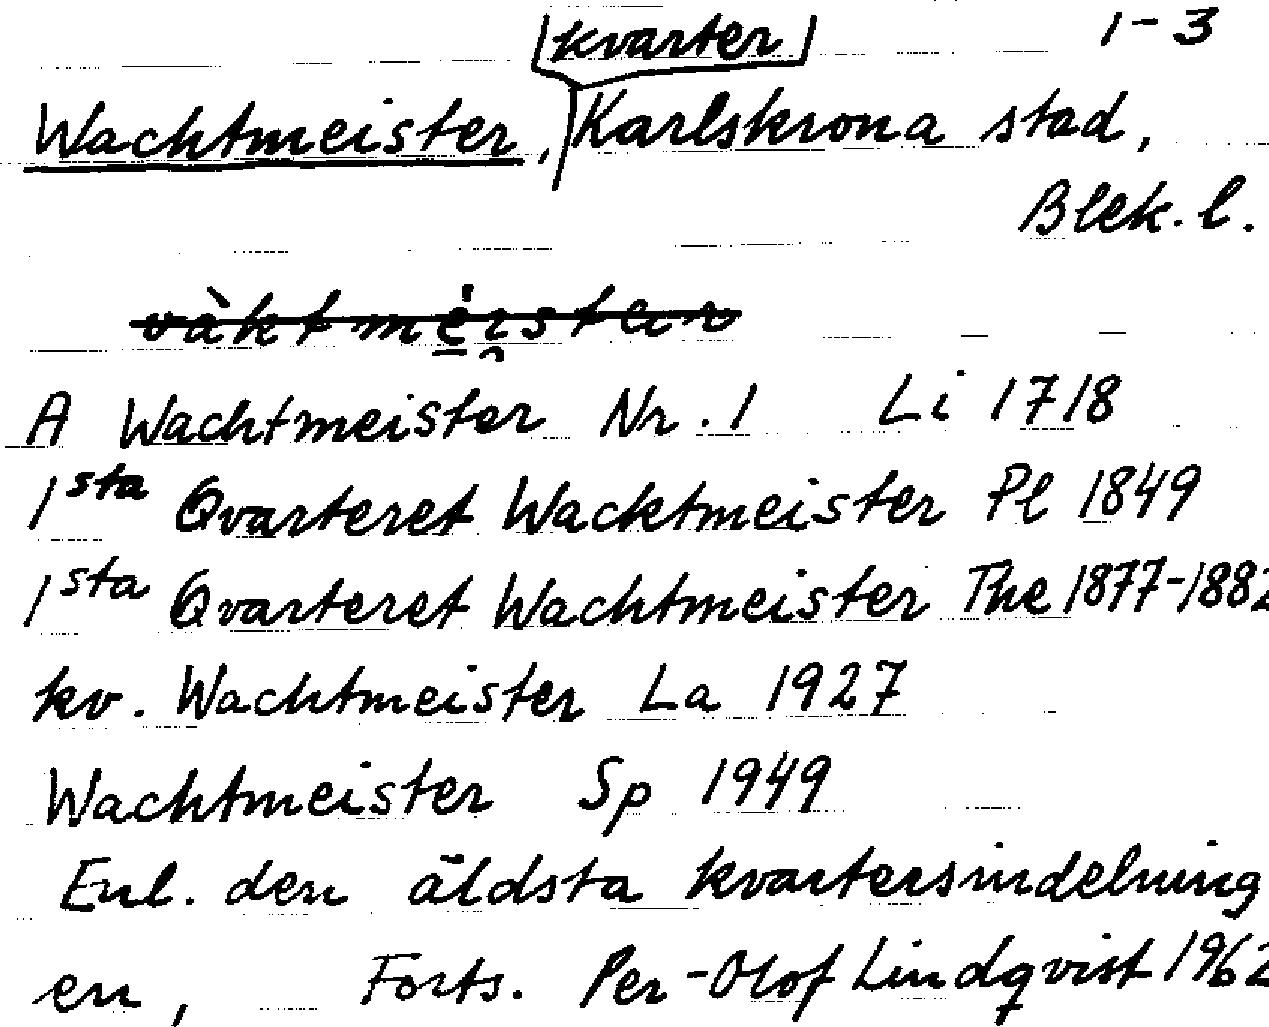 kvarter 1-3
Wachtmeister, Karlskrona stad,
Blek. l.
A Wachtmeister Nr. 1 Li 1718
1sta Qvarteret Wacktmeister Pl 1849
1sta Qvarteret Wachtmeister The 1877-1882
kv. Wachtmeister La 1927
Wachtmeister Sp 1949
Enl. den äldsta kvartersindelning
en, Forts. Per-Olof Lindqvist 1962